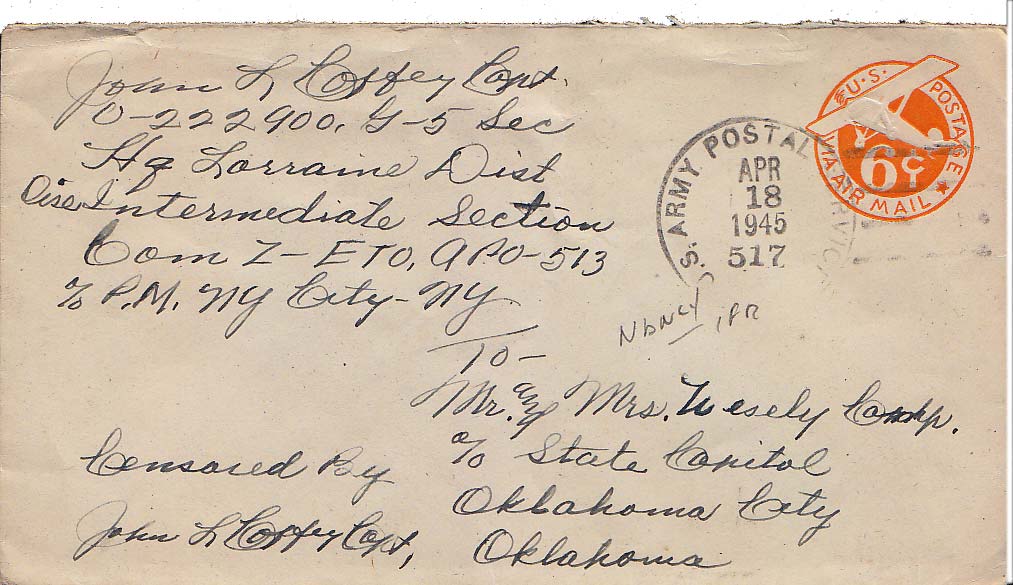 John L Coffey Capt.
O-222900, G-5 Sec
Hq Lorraine Dist
Oise Intermediate Section
Com Z - ETO, APO-513
c/o P.M. NY City - NY
U.S. ARMY POSTAL SERVICE
APR
18
1945
517
U.S. POSTAGE
6¢
VIA AIR MAIL
Nancy, FR
To -
Mr. and Mrs. Wesely Camp.
c/o State Capitol
Oklahoma City
Oklahoma
Censored By
John L Coffey Capt,